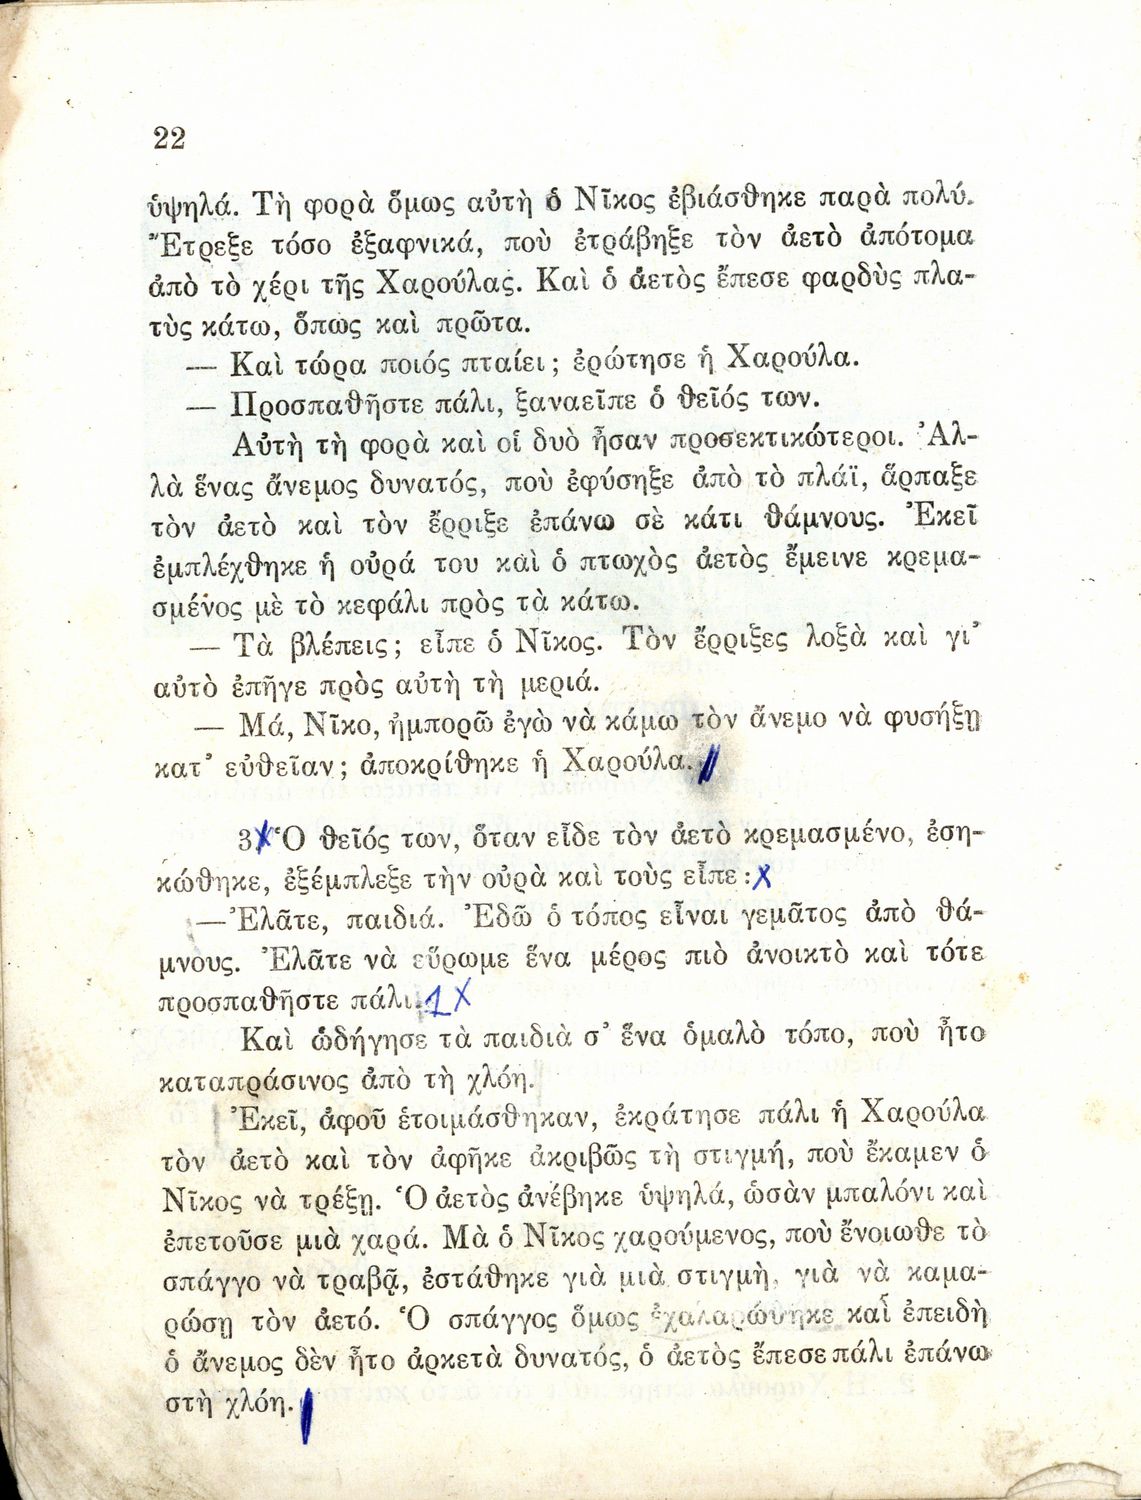 22
ὑψηλά. Τὴ φορὰ ὅμως αὐτὴ ὁ Νῖκος ἐβιάσθηκε παρὰ πολύ.
Ἔτρεξε τόσο ἐξαφνικά, ποὺ ἐτράβηξε τὸν ἀετὸ ἀπότομα
ἀπὸ τὸ χέρι τῆς Χαρούλας. Καὶ ὁ ἀετὸς ἔπεσε φαρδὺς πλα-
τὺς κάτω, ὅπως καὶ πρῶτα.
— Καὶ τώρα ποιός πταίει; ἐρώτησε ἡ Χαρούλα.
— Προσπαθῆστε πάλι, ξαναεῖπε ὁ θεῖός των.
Αὐτὴ τὴ φορὰ καὶ οἱ δυὸ ἦσαν προσεκτικώτεροι. Ἀλ-
λὰ ἕνας ἄνεμος δυνατός, ποὺ ἐφύσηξε ἀπὸ τὸ πλάϊ, ἅρπαξε
τὸν ἀετὸ καὶ τὸν ἔρριξε ἐπάνω σὲ κάτι θάμνους. Ἐκεῖ
ἐμπλέχθηκε ἡ οὐρά του καὶ ὁ πτωχὸς ἀετὸς ἔμεινε κρεμα-
σμένος μὲ τὸ κεφάλι πρὸς τὰ κάτω.
— Τὰ βλέπεις; εἶπε ὁ Νῖκος. Τὸν ἔρριξες λοξὰ καὶ γι᾿
αὐτὸ ἐπῆγε πρὸς αὐτὴ τὴ μεριά.
— Μά, Νῖκο, ἠμπορῶ ἐγὼ νὰ κάμω τὸν ἄνεμο νὰ φυσήξῃ
κατ᾿ εὐθεῖαν; ἀποκρίθηκε ἡ Χαρούλα.
3 X Ὁ θεῖός των, ὅταν εἶδε τὸν ἀετὸ κρεμασμένο, ἐση-
κώθηκε, ἐξέμπλεξε τὴν οὐρὰ καὶ τοὺς εἶπε: X
—Ἐλᾶτε, παιδιά. Ἐδῶ ὁ τόπος εἶναι γεμᾶτος ἀπὸ θά-
μνους. Ἐλᾶτε νὰ εὕρωμε ἕνα μέρος πιὸ ἀνοικτὸ καὶ τότε
προσπαθῆστε πάλι. 1 X
Καὶ ὡδήγησε τὰ παιδιὰ σ᾿ ἕνα ὁμαλὸ τόπο, ποὺ ἦτο
καταπράσινος ἀπὸ τὴ χλόη.
Ἐκεῖ, ἀφοῦ ἑτοιμάσθηκαν, ἐκράτησε πάλι ἡ Χαρούλα
τὸν ἀετὸ καὶ τὸν ἀφῆκε ἀκριβῶς τὴ στιγμή, ποὺ ἔκαμεν ὁ
Νῖκος νὰ τρέξῃ. Ὁ ἀετὸς ἀνέβηκε ὑψηλά, ὡσὰν μπαλόνι καὶ
ἐπετοῦσε μιὰ χαρά. Μὰ ὁ Νῖκος χαρούμενος, ποὺ ἔνοιωθε τὸ
σπάγγο νὰ τραβᾷ, ἐστάθηκε γιὰ μιὰ στιγμὴ, γιὰ νὰ καμα-
ρώσῃ τὸν ἀετό. Ὁ σπάγγος ὅμως ἐχαλαρώθηκε καὶ ἐπειδὴ
ὁ ἄνεμος δὲν ἦτο ἀρκετὰ δυνατός, ὁ ἀετὸς ἔπεσε πάλι ἐπάνω
στὴ χλόη.